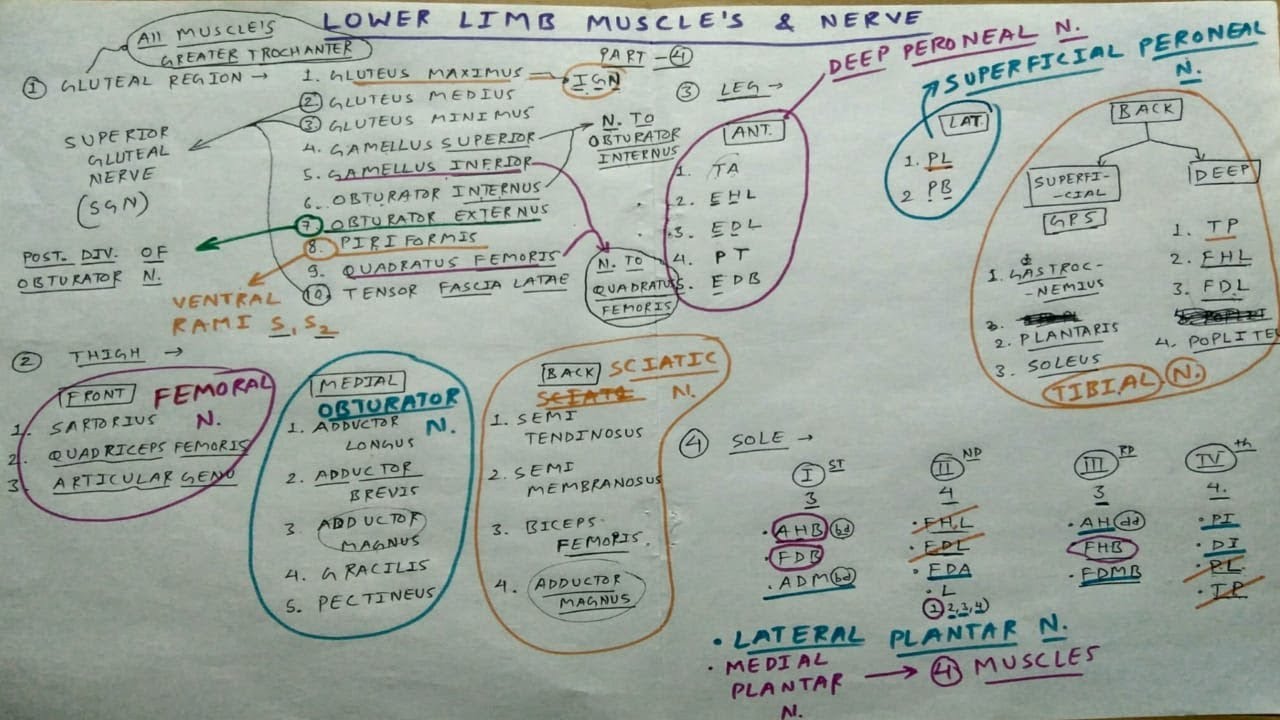 LOWER LIMB MUSCLE'S & NERVE
PART - 4
All MUSCLE'S
GREATER TROCHANTER
1 GLUTEAL REGION →
1. GLUTEUS MAXIMUS → IGN
2 GLUTEUS MEDIUS
3 GLUTEUS MINIMUS
4. GAMELLUS SUPERIOR
5. GAMELLUS INFRIOR
6. OBTURATOR INTERNUS
7 OBTURATOR EXTERNUS
8. PIRIFORMIS
9. QUADRATUS FEMORIS
10. TENSOR FASCIA LATAE
SUPERIOR
GLUTEAL
NERVE
(SGN)
N. TO
OBTURATOR
INTERNUS
POST. DIV. OF
OBTURATOR N.
VENTRAL
RAMI S1 S2
N. TO
QUADRATUS
FEMORIS
2 THIGH →
FRONT FEMORAL
N.
1. SARTORIUS
2. QUADRICEPS FEMORIS
3. ARTICULAR GENU
MEDIAL
OBTURATOR
N.
1. ADDUCTOR
LONGUS
2. ADDUCTOR
BREVIS
3 ADDUCTOR
MAGNUS
4. GRACILIS
5. PECTINEUS
BACK SCIATIC
N.
1. SEMI
TENDINOSUS
2. SEMI
MEMBRANOSUS
3. BICEPS
FEMORIS.
4. ADDUCTOR
MAGNUS
3 LEG →
DEEP PERONEAL N.
ANT.
1. TA
2. EHL
3. EDL
4. PT
5. EDB
SUPERFICIAL PERONEAL
N.
LAT
1. PL
2 PB
BACK
SUPERFI-
-CIAL
GPS
1. GASTROC-
-NEMIUS
2. PLANTARIS
3. SOLEUS
DEEP
1. TP
2. FHL
3. FDL
4. POPLITE
TIBIAL N.
4 SOLE →
I ST
3
• AHB bd
• FDB
• ADM bd
II ND
4
• FHL
• FDL
• FDA
• L
1 2,3,4)
III RD
3
• AH dd
FHB
• FDMB
IV th
4.
• PI
• DI
• PL
• TP
• LATERAL PLANTAR N.
• MEDIAL
PLANTAR → 4 MUSCLES
N.